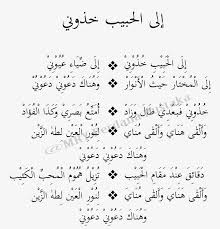 إلى الحبيب خذوني
إلى الْحَبِيْبِ خُذُوْنِيْ ❖ إِلى ضِيَاءِ عُيُوْنِيْ
إلى الْمُخْتَارِ حَيْثُ الْأَنْوَار ❖ وَهُنَاكَ دَعُوْنِيْ دَعُوْنِيْ
خُذُوْنِيْ فَبُعْدِيْ طَالَ وَزَادْ ❖ أُمَتِّعُ بَصَرِيْ وَكَذَا الْفُؤَادْ
وَأَلْقَى هَنَايَ وَأَلْقَى مُنَايْ ❖ لِنُوْرِ الْعَيْنِ لِطٰهَ الزَّيْنْ
وَهُنَاكَ دَعُوْنِيْ دَعُوْنِيْ
دَقَائِق عِنْدَ مَقَامِ الْحَبِيْبْ ❖ تُزِيْلُ هُمُوْمَ الْمُحِبِّ الْكَئِيْبْ
وَأَلْقَى هَنَايَ وَأَلْقَى مُنَايْ ❖ لِنُوْرِ الْعَيْنِ لِطٰهَ الزَّيْنْ
وَهُنَاكَ دَعُوْنِيْ دَعُوْنِيْ